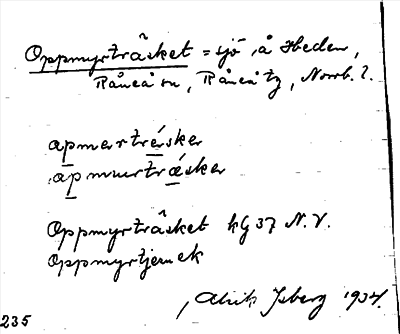 Oppmyrträsket = sjö å Heden,
Råneå sn, Råneå tg, Norrb. l.
apmertrésker
apmurtræsker
Oppmyrträsket kg 37 N.V.
Oppmyrtjernek
Alrik Isberg 1934.
235